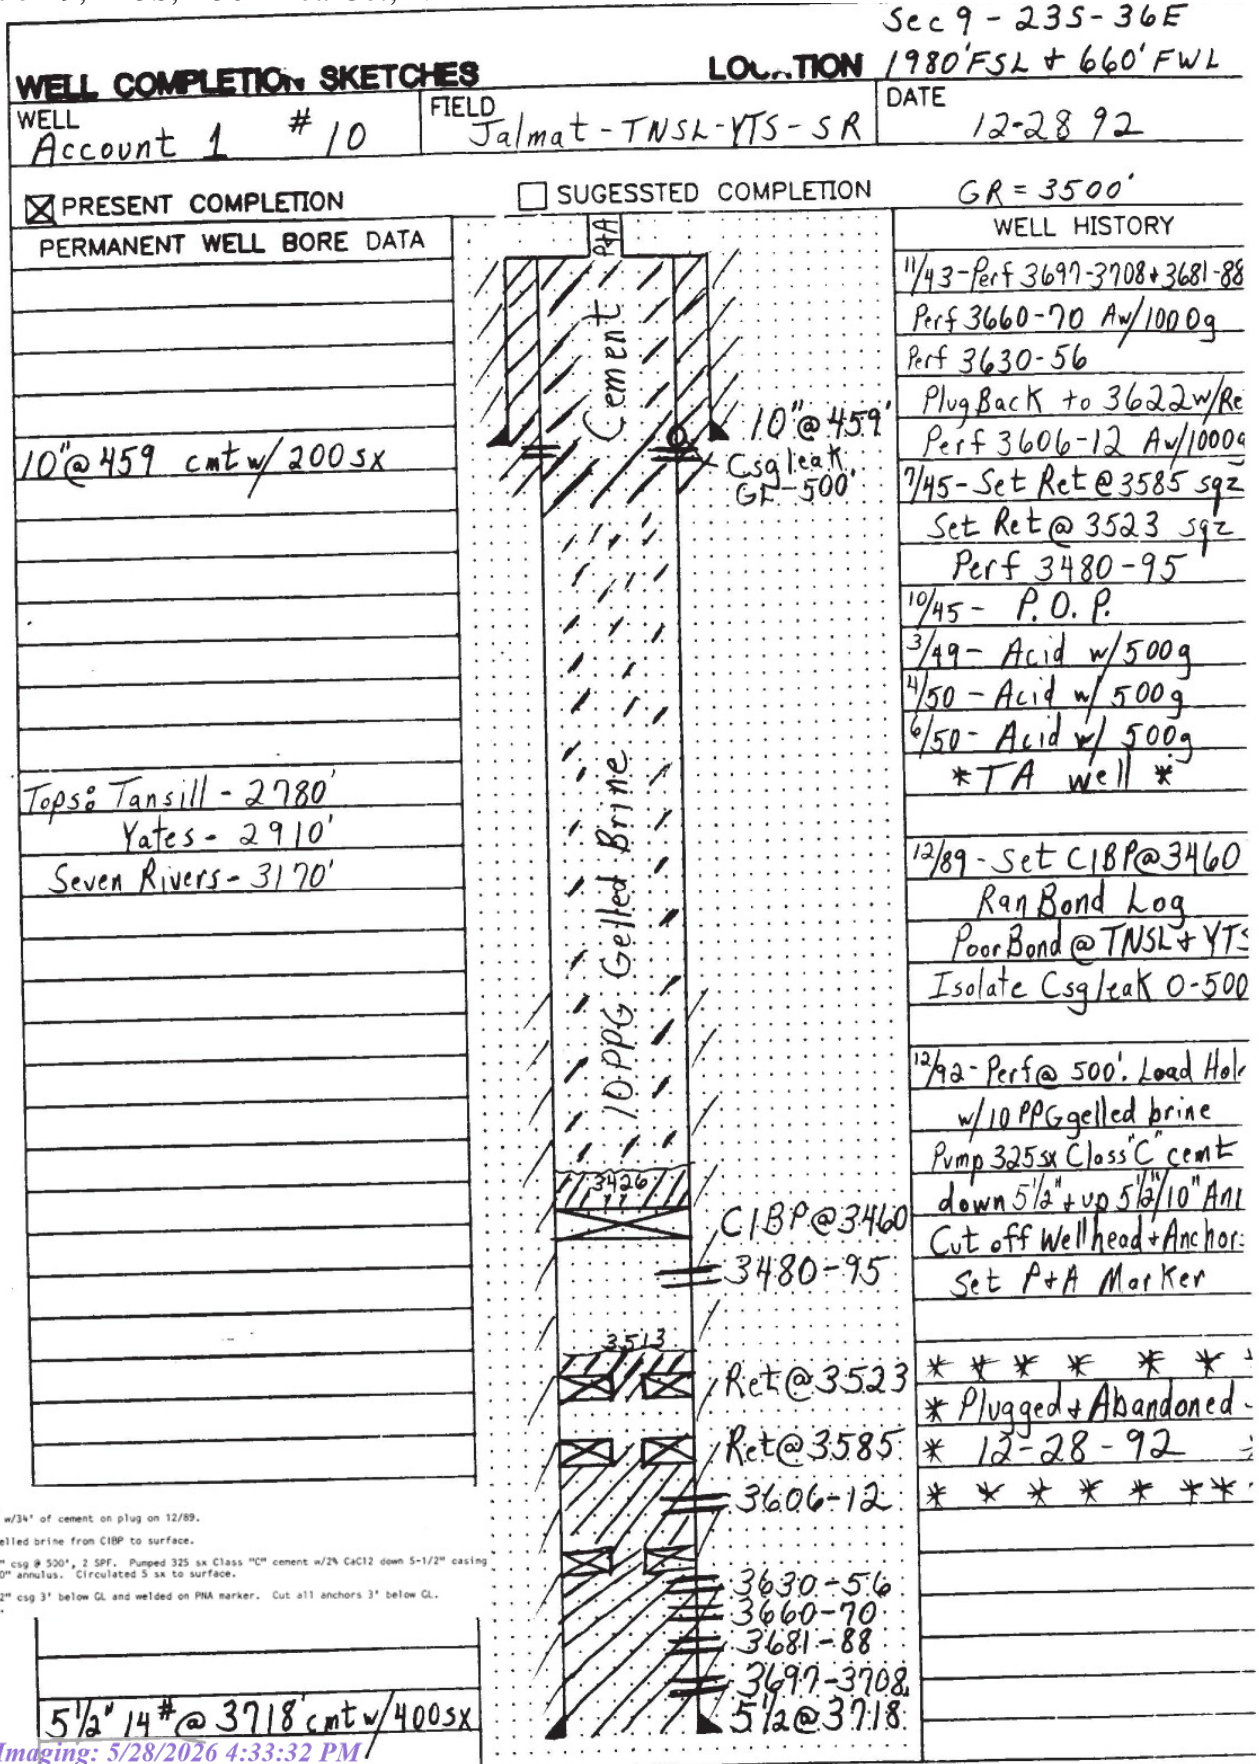 Sec 9 - 23S - 36E
WELL COMPLETION SKETCHES
LOCATION 1980' FSL + 660' FWL
WELL Account 1 # 10
FIELD Jalmat-TNSL-YTS-SR
DATE 12-28 92
PRESENT COMPLETION
SUGESSTED COMPLETION
GR = 3500'
PERMANENT WELL BORE DATA
10" @ 459 cmt w/ 200 sx
Tops: Tansill - 2780'
Yates - 2910'
Seven Rivers - 3170'
w/34' of cement on plug on 12/89.
elled brine from CIBP to surface.
" csg @ 500', 2 SPF. Pumped 325 sx Class "C" cement w/2% CaCl2 down 5-1/2" casing
0" annulus. Circulated 5 sx to surface.
2" csg 3' below GL and welded on PNA marker. Cut all anchors 3' below GL.
5 1/2" 14# @ 3718' cmt w/ 400 sx
P+A
Cement
10" @ 459'
Csg leak
GL-500'
10 PPG Gelled Brine
3426
CIBP @ 3460
3480-95
3513
Ret @ 3523
Ret @ 3585
3606-12
3630-56
3660-70
3681-88
3697-3708
5 1/2 @ 3718
WELL HISTORY
11/43 - Perf 3697-3708 + 3681-88
Perf 3660-70 Aw/1000g
Perf 3630-56
Plug Back to 3622 w/Re
Perf 3606-12 Aw/1000g
7/45 - Set Ret @ 3585 sqz
Set Ret @ 3523 sqz
Perf 3480-95
10/45 - P.O.P.
3/49 - Acid w/ 500g
4/50 - Acid w/ 500g
6/50 - Acid w/ 500g
* TA well *
12/89 - Set CIBP @ 3460
Ran Bond Log
Poor Bond @ TNSL + YTS
Isolate Csg leak 0-500
12/92 - Perf @ 500'. Load Hole
w/ 10 PPG gelled brine
Pump 325 sx Class "C" cemt
down 5 1/2" + up 5 1/2"/10" Ann
Cut off Wellhead + Anchors
Set P+A Marker
* * * * * *
* Plugged + Abandoned
* 12-28-92
* * * * * * *
Imaging: 5/28/2026 4:33:32 PM